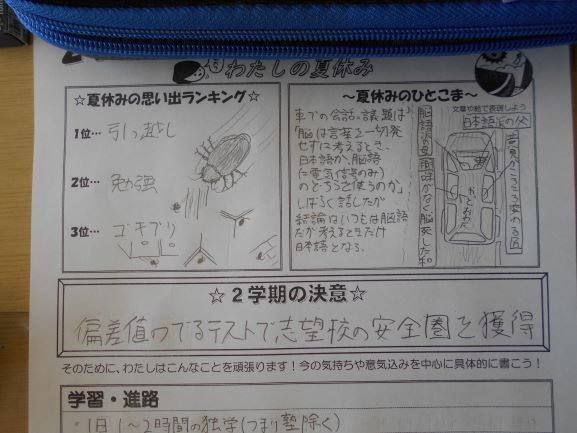 わたしの夏休み
☆夏休みの思い出ランキング☆
1位… 引っ越し
2位… 勉強
3位… ゴキブリ
～夏休みのひとこま～
文章や絵で表現しよう
車での会話。議題は
「脳は言葉を一切発
せずに考えるとき、
日本語か、脳語
(=電気信号のみ)
のどちらを使うのか」
しばらく話したが
結論はいつもは脳語
だが考えるときだけ
日本語となる。
日本語派の父
脳語派の母
意見がころころ変わる兄
☆２学期の決意☆
偏差値のでるテストで志望校の安全圏を獲得
そのために、わたしはこんなことを頑張ります！今の気持ちや意気込みを中心に具体的に書こう！
学習・進路
・1日1～2時間の独学(つまり塾除く)